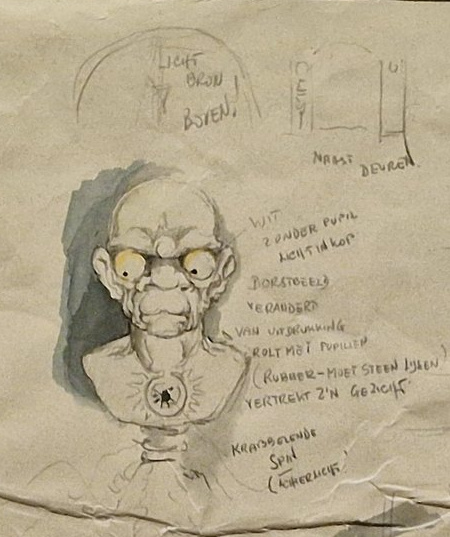 LICHT
BRON
BOVEN!
NAAST
DEUREN.
WIT
ZONDER PUPIL
LICHT IN KOP
BORSTBEELD
VERANDERD
VAN UITDRUKKING
ROLT MET PUPILLEN
(RUBBER-MOET STEEN LIJKEN)
VERTREKT Z'N GEZICHT
KRABBELENDE
SPIN
(ACHTERLICHT!